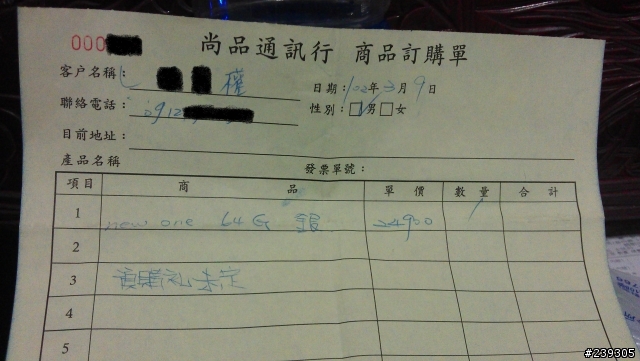 000
尚品通訊行 商品訂購單
客户名稱: 權
日期: 102年3月9日
聯絡電話: 0912
性別: □男□女
目前地址:
產品名稱
發票單號:
項目 商 品 單 價 數 量 合 計
1 new one 64G 銀 24900 1
2
3 預購礼未定
4
5
#239305